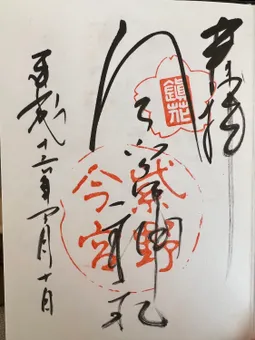 奉拝
鎮花
今宮神社
紫野
今宮
平成年四月十日